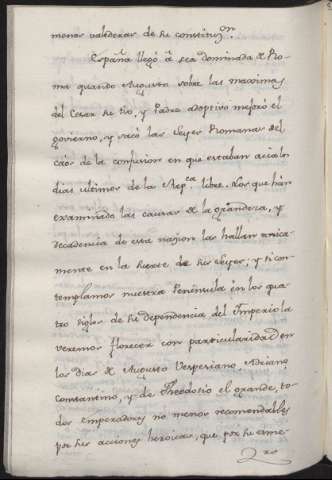 menos valederas de su constituz.on
España llegó á ser dominada de Ro-
ma quando Augusto sobre las maximas
del Cesar su tio, y Padre adoptivo mejoró el
govierno, y sacó las Leyes Romanas del
caos de la confusion en que estaban acia los
dias ultimos de la Rep.ca libre. Los que hán
examinado las causas de la grandeza, y
decadencia de esta nazion las hallan unica-
mente en la serie de sus Leyes; y si con-
templamos nuestra Peninsula en los qua-
tro siglos de su dependencia del Imperio la
veremos florecer con particularidad en
los dias de Augusto Vespesiano, Adriano,
Constantino, y de Theodosio el grande, to-
dos emperadores no menos recomendables
por sus acciones heroicas, que por su esme-
ro